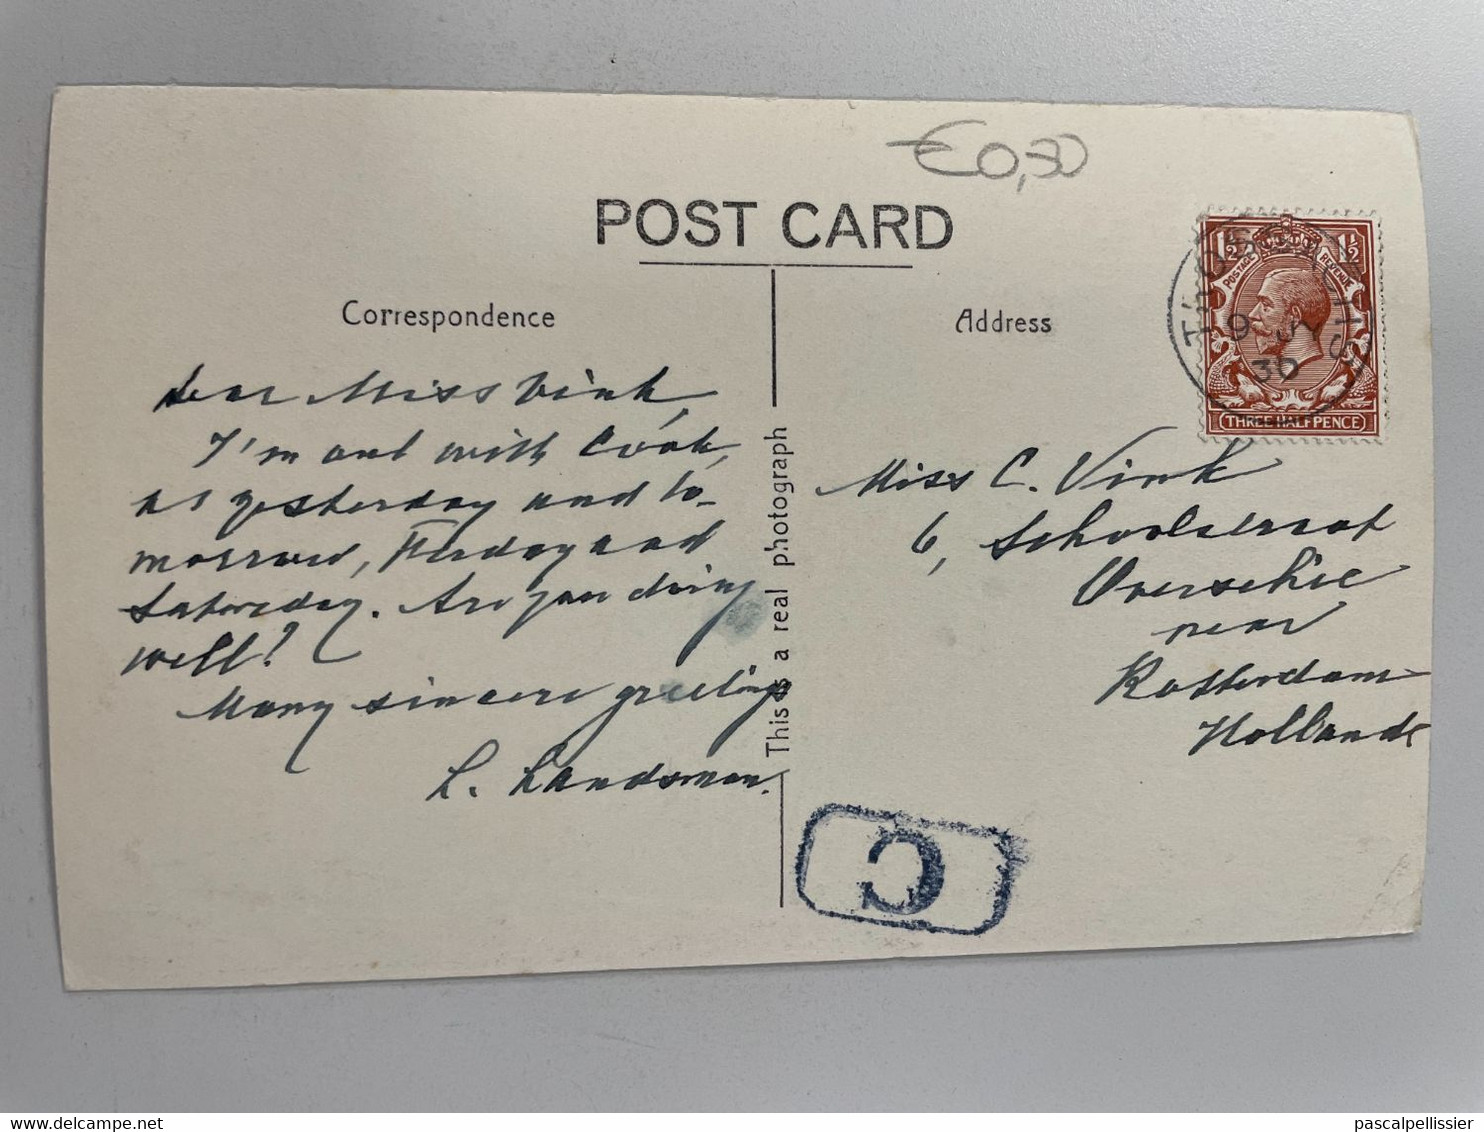 €0,30
POST CARD
Correspondence
Dear Miss Vink,
I'm out with Cook,
as yesterday and to-
morrow, Friday and
Saturday. Are you doing
well?
Many sincere greetings
L. Landsman.
This is a real photograph
Address
1½ 1½
POSTAGE REVENUE
THREE HALFPENCE
9 JY
30
Miss C. Vink
6, Schoolstraat
Overschie
near
Rotterdam
Holland
C
www.delcampe.net
pascalpellissier